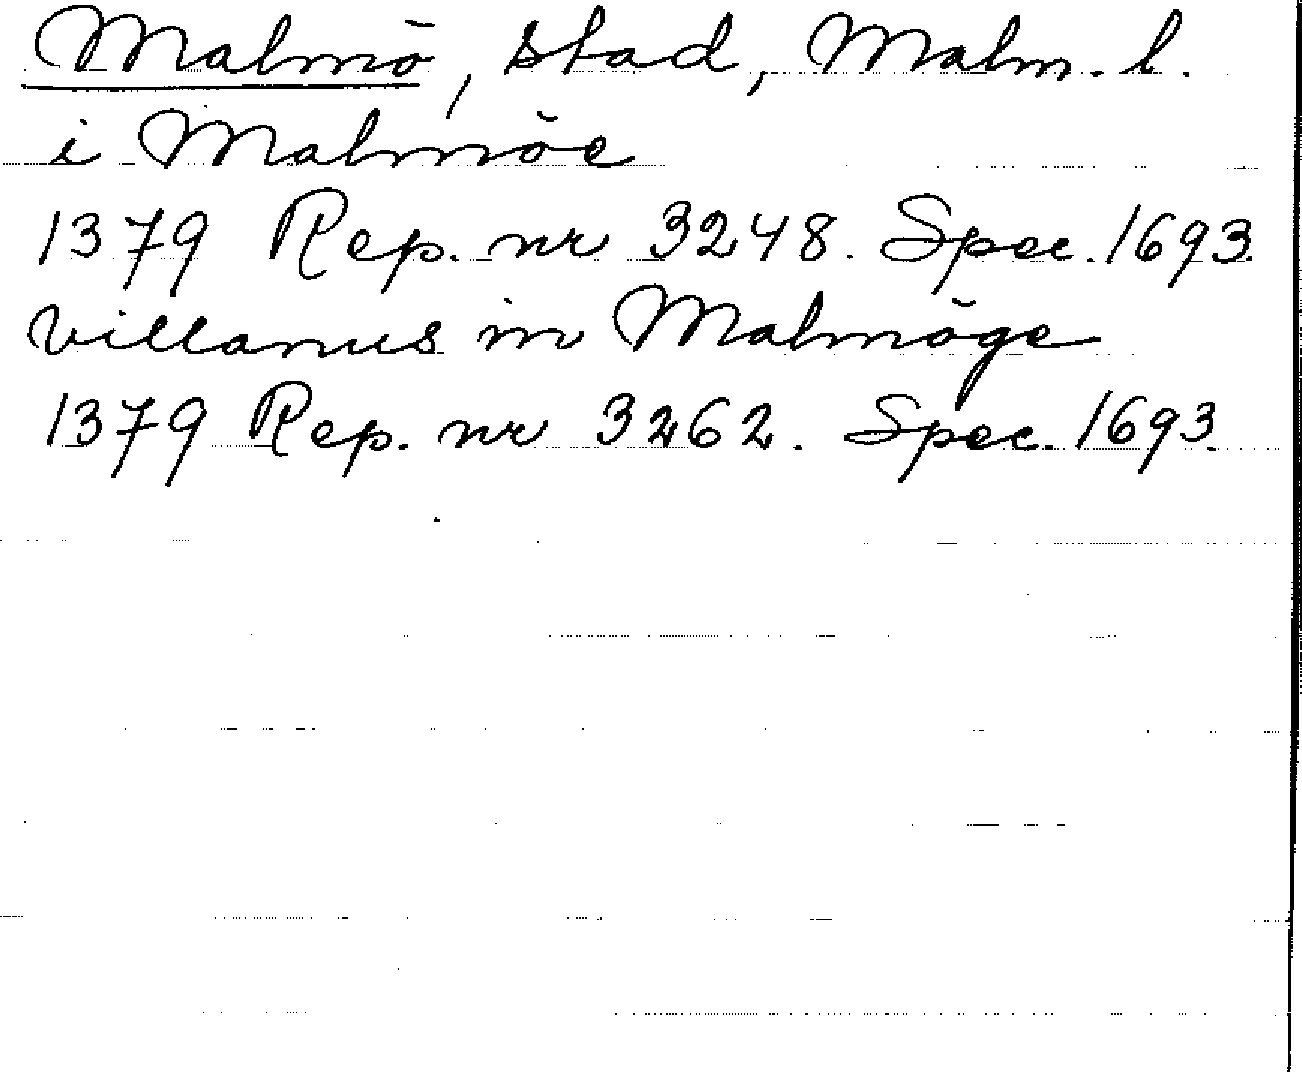 Malmö, stad, Malm. l.
i Malmöe
1379 Rep. nr 3248. Spec. 1693.
villanus in Malmöge
1379 Rep. nr 3262. Spec. 1693.